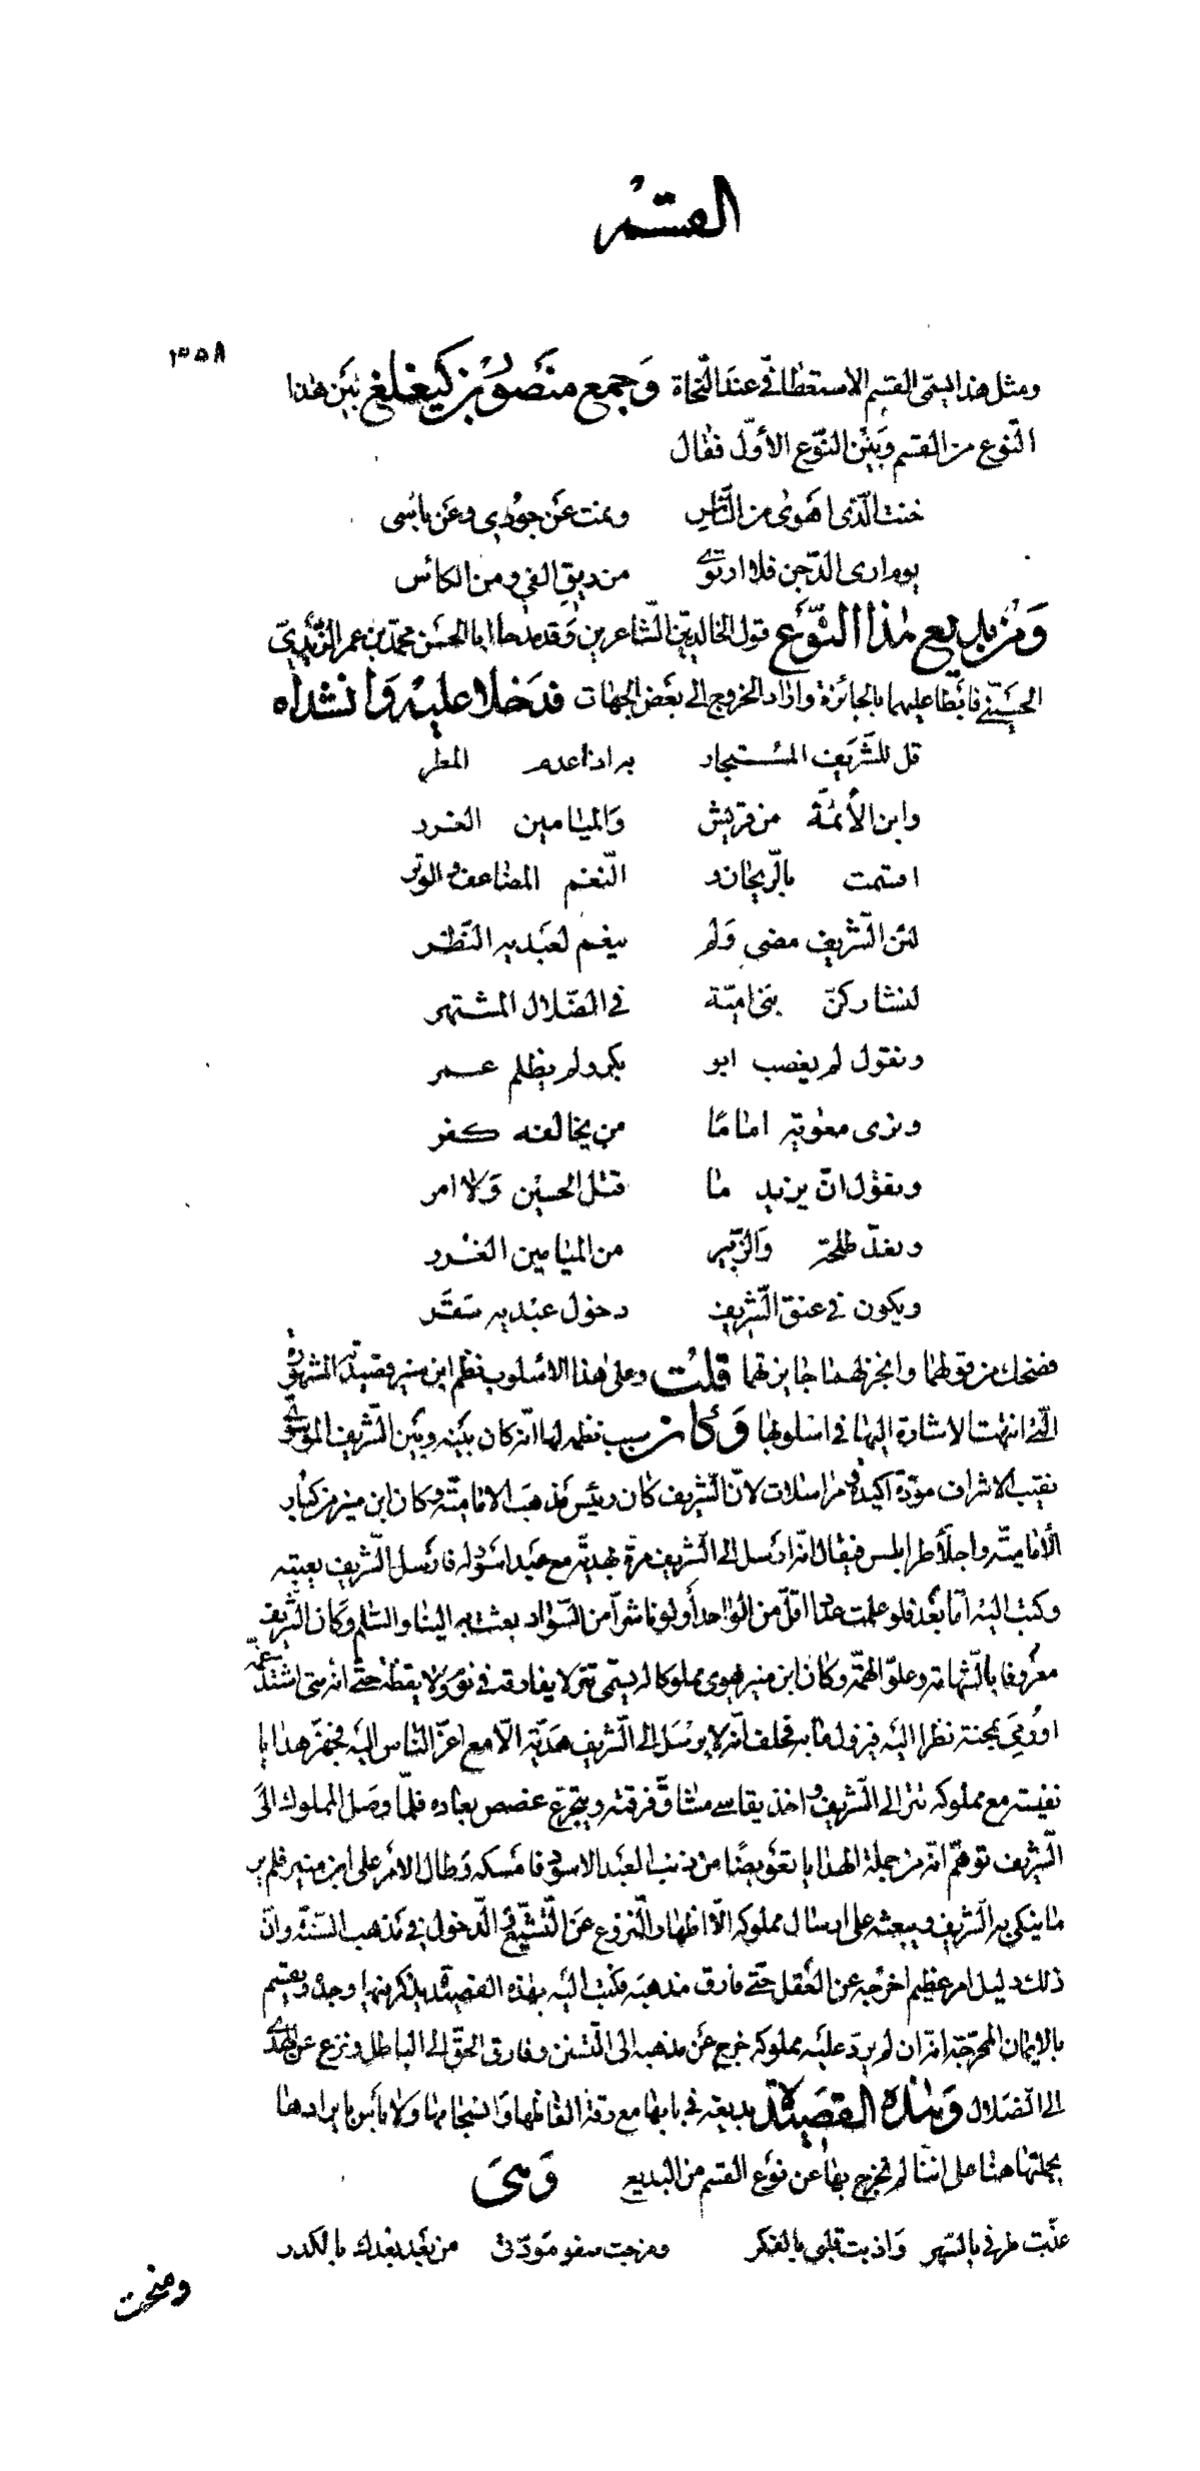 القسم
٣٥٨
ومثل هذا يسمّى القسم الاستعطافي عند النّحاة وَجمع منصور بن كيغلغ بَين هٰذا
النّوع من القسم وَبين النوّع الأوّل فقال
خنت الّذي اهَوٰى من النّاسِ ونمت عَن جوُدي وعَن باسى
يوم ارى الدّجن فلا ارتوى من ريق الفي ومن الكاس
وَمن بديع هٰذا النّوّع قول الخالديّين الشّاعرين وَقد مدحا ابا الحسَن محمّد بن عمر الزّيديّ
الحسَينّي فابَطا عليهما بالجائزة واراد الخروج الى بعَض الجهات فدَخلا عليه وَانشداه
قل للشّريف المسُتجار به اذا عدم المطر
وابن الأئمّة من قريش وَالميامين الغرر
اقسمت بالرّيحان و النّغم المضاعف والوتر
لئن الشّريف مضى وَلم ينعم لعَبديه النظر
لنشاركنّ بني اميّة في الضّلال المشتهر
ونقول لم يغصب ابو بكر ولم يظلم عمر
ونرى معوٰية اماماً من يخالفه كفر
ونقول انّ يزيد ما قتل الحسين وَلا امر
ونعدّ طلحة وَالزّبير من الميامين الغرر
ويكون في عنق الشّريف دخول عبديه سَقَر
فضحك من قولهما وانجز لهما جايزتهما قلت وعلى هٰذا الاسلوب نظم ابن منير قصيدته المشهورة
الّتي انتهت الاشارة اليها في اسلوبها وَكان سبب نظمه لها انّه كان بينه وبَين الشّريف الموسَوي
نقيب الاشراف مودّة اكيدة ومراسلات لانّ الشّريف كان رئيس مذهب الاماميّة وكان ابن منير من كبار
الأماميّة واجلاّء طرابلس فيقال انّه ارسل الى الشّريف مرة بهديّة مع عبد اسود له فارسل الشّريف يعيبه
وكتب اليه امّا بعَد فلو علمت عددا اقلّ من الواحد أو لونا شراً من السّواد بعثت به الينا والسّلم وكان الشّريف
معرُوفا بالشّهامة وعلوّ الهمّة وكان ابن منير يهوى مملوكا له يسمّى تتر لا يفارقه في نوم وَلا يقظة حتّى انه متى اشتدّ غمّه
او رُمي بمحنة نظر اليه فيزول ما به فحلف انّه لا يرسَل الى الشّريف هديّة الّا مع اعزّ النّاس اليه فجهّز هدايا
نفيسة مع مملوكه تتر الى الشّريف واخذ يقاسي مشاقّ فرقته ويتجرّع غصص بعاده فلمّا وصل المملوك الى
الشّريف توهّم انّه من جملة الهدايا تعَويضًا من ذنب العَبد الاسود فامَسكه وَطال الامر على ابن منير فلم ير
ما ينكي به الشّريف ويبعثه على ارسال مملوكه الّا اظهار النّزوع عَن التّشيّع والدّخول في مذهب السنّة وانّ
ذلك دليل امر عظيم اخرجه عن العَقل حتّى فارق مذهبَه فكتب اليَه بهٰذه القصيدة يذكر فيها وجده ويقسم
بالايمان المحرّجة انّه ان لم يردّ عليَه مملوكه خرج عَن مذهبه الى التّسنن وفارق الحقّ الى الباطل ونزع عن الهدى
الى الضّلال وَهٰذه القصَيدة بديعة في بابها مع رقة الفاظها وَانسجامها وَلا بأس بايرادها
بجملتها هنا على انّنا لم نخرج بها عن نوَع القسم من البديع وَهيَ
عذّبت طرفي بالسّهر وَاذبت قلبي بالفكر ومزجت صفو مَودّتى من بعَد بعَدك بالكدر
ومنحت